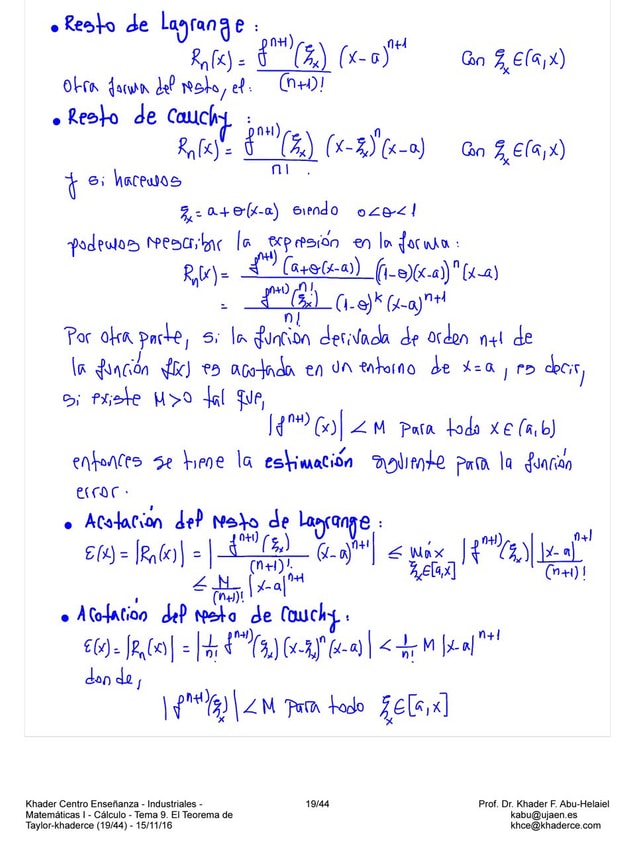 • Resto de Lagrange :
Rn(x) = f^(n+1)(ξx) / (n+1)! (x-a)^(n+1) Con ξx ∈ (a, x)
Otra forma del resto, el:
• Resto de Cauchy :
Rn(x) = f^(n+1)(ξx) / n! (x-ξx)^n (x-a) Con ξx ∈ (a, x)
y si hacemos
ξx = a + θ(x-a) siendo 0<θ<1
podemos reescribir la expresión en la forma:
Rn(x) = f^(n+1)(a+θ(x-a)) / n! ((1-θ)(x-a))^n (x-a)
= f^(n+1)(ξx) / n! (1-θ)^k (x-a)^(n+1)
Por otra parte, si la función derivada de orden n+1 de
la función f(x) es acotada en un entorno de x=a, es decir,
si existe M>0 tal que,
|f^(n+1)(x)| < M para todo x ∈ (a, b)
entonces se tiene la estimación siguiente para la función
error.
• Acotación del resto de Lagrange :
ε(x) = |Rn(x)| = | f^(n+1)(ξx) / (n+1)! (x-a)^(n+1) | ≤ máx ξx∈[a,x] |f^(n+1)(ξx)| |x-a|^(n+1) / (n+1)!
≤ M / (n+1)! |x-a|^(n+1)
• Acotación del resto de Cauchy :
ε(x) = |Rn(x)| = | 1/n! f^(n+1)(ξx) (x-ξx)^n (x-a) | < 1/n! M |x-a|^(n+1)
donde,
|f^(n+1)(ξx)| < M para todo ξx ∈ [a, x]
Khader Centro Enseñanza - Industriales -
Matemáticas I - Cálculo - Tema 9. El Teorema de
Taylor-khaderce (19/44) - 15/11/16
19/44
Prof. Dr. Khader F. Abu-Helaiel
kabu@ujaen.es
khce@khaderce.com